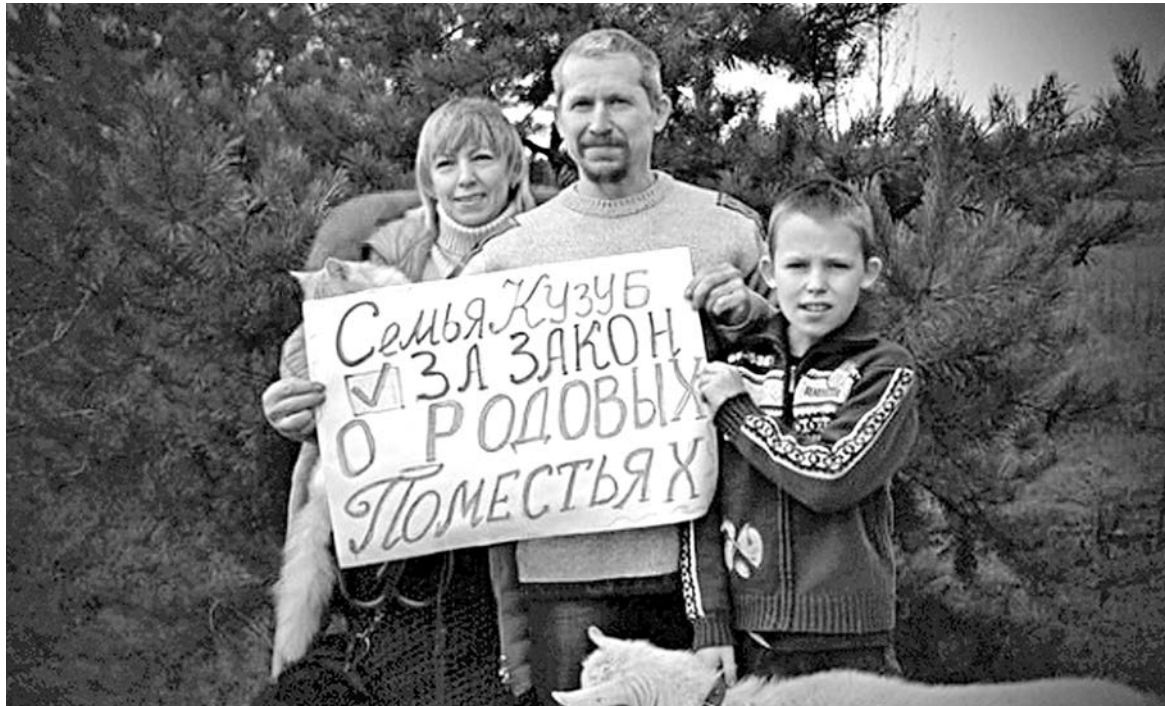 Семья Кузуб
☑ ЗА ЗАКОН
О РОДОВЫХ
ПОМЕСТЬЯХ